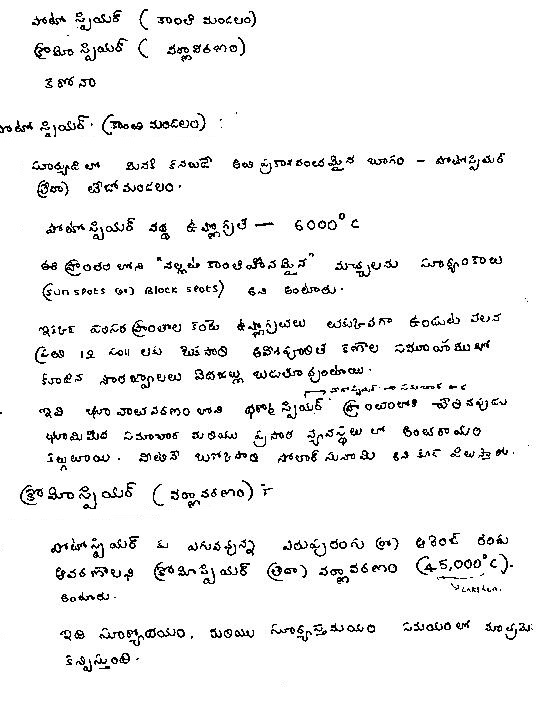 ఫోటో స్ఫియర్ ( కాంతి మండలం)
క్రోమో స్ఫియర్ ( వర్ణావరణం)
కరోనా
ఫోటో స్ఫియర్. (కాంతి మండలం) :
సూర్యుడిలో మనకి కనబడే అతి ప్రకాశవంతమైన భాగం - ఫోటోస్ఫియర్
(లేదా) తేజోమండలం.
ఫోటో స్ఫియర్ వద్ద ఉష్ణోగ్రత — 6000°c
ఈ ప్రాంతం లోని "నల్లటి కాంతిహీనమైన" మచ్చలను సూర్యాంకాలు
(sun spots (or) Block spots) అని అంటారు.
ఇవి పరిసర ప్రాంతాల కంటే ఉష్ణోగ్రతలు తక్కువగా ఉండుట వలన
ప్రతి 12 సం॥ లకు ఒకసారి కణాల సముదాయముతో
కూడిన సౌరజ్వాలలు వెదజల్లు బడుతూ ఉంటాయి.
ఇవి భూ వాతావరణం లోని స్ఫియర్ ప్రాంతంలోకి చేరినప్పుడు
భూమిమీద సమాచార మరియు ప్రసార వ్యవస్థలు లో అంతరాయం
కల్గుతాయి. వీటినే ఒక్కోసారి సోలార్ సునామి అని కూడ పిలుస్తారు.
క్రోమోస్ఫియర్ ( వర్ణావరణం) :-
ఫోటోస్ఫియర్ కు ఎగువవున్న ఎరుపురంగు (or) ఆరెంజ్ రంగు
ఆవరణాలని క్రోమోస్ఫియర్ (లేదా) వర్ణావరణం (45,000°c).
అంటారు.
ఇది సూర్యోదయం, మరియు సూర్యాస్తమయం సమయంలో మాత్రమే
కన్పిస్తుంది.